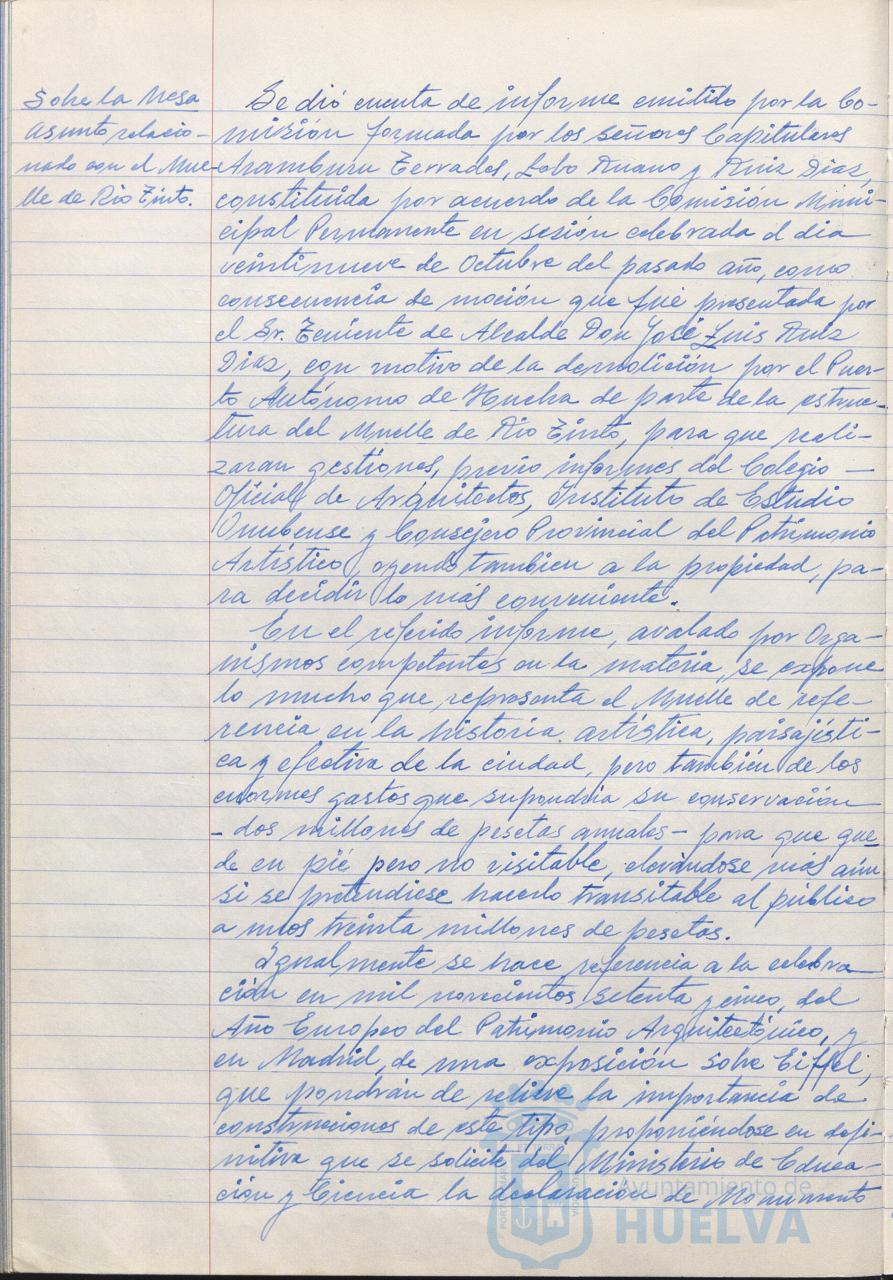 Sobre la Mesa
asunto relacio-
nado con el Mue-
lle de Rio Tinto.
Se dió cuenta de informe emitido por la Co-
misión formada por los señores Capitulares
Aramburu Terrades, Lobo Ruano y Ruiz Diaz,
constituida por acuerdo de la Comisión Muni-
cipal Permanente en sesión celebrada el dia
veintinueve de Octubre del pasado año, como
consecuencia de moción que fué presentada por
el Sr. Teniente de Alcalde Don José Luis Ruiz
Diaz, con motivo de la demolición por el Puer-
to Autónomo de Huelva de parte de la estruc-
tura del Muelle de Rio Tinto, para que reali-
zaran gestiones, previo informes del Colegio —
Oficial de Arquitectos, Instituto de Estudio
Onubense y Consejero Provincial del Patrimonio
Artístico, oyendo tambien a la propiedad, pa-
ra decidir lo más conveniente.
En el referido informe, avalado por Orga-
nismos competentes en la materia, se expone
lo mucho que representa el Muelle de refe-
rencia en la historia artística, paisajísti-
ca y efectiva de la ciudad, pero también de los
enormes gastos que supondria su conservación
- dos millones de pesetas anuales - para que que
de en pié pero no visitable, elevándose más aún
si se pretendiese hacerlo transitable al público
a unos treinta millones de pesetas.
Igualmente se hace referencia a la celebra
ción en mil novecientos setenta y cinco, del
Año Europeo del Patrimonio Arquitectónico, y
en Madrid, de una exposición sobre Eiffel,
que pondrán de relieve la importancia de
construcciones de este tipo, proponiéndose en defi-
nitiva que se solicite del Ministerio de Educa-
ción y Ciencia la declaración de Monumento
Ayuntamiento de
HUELVA